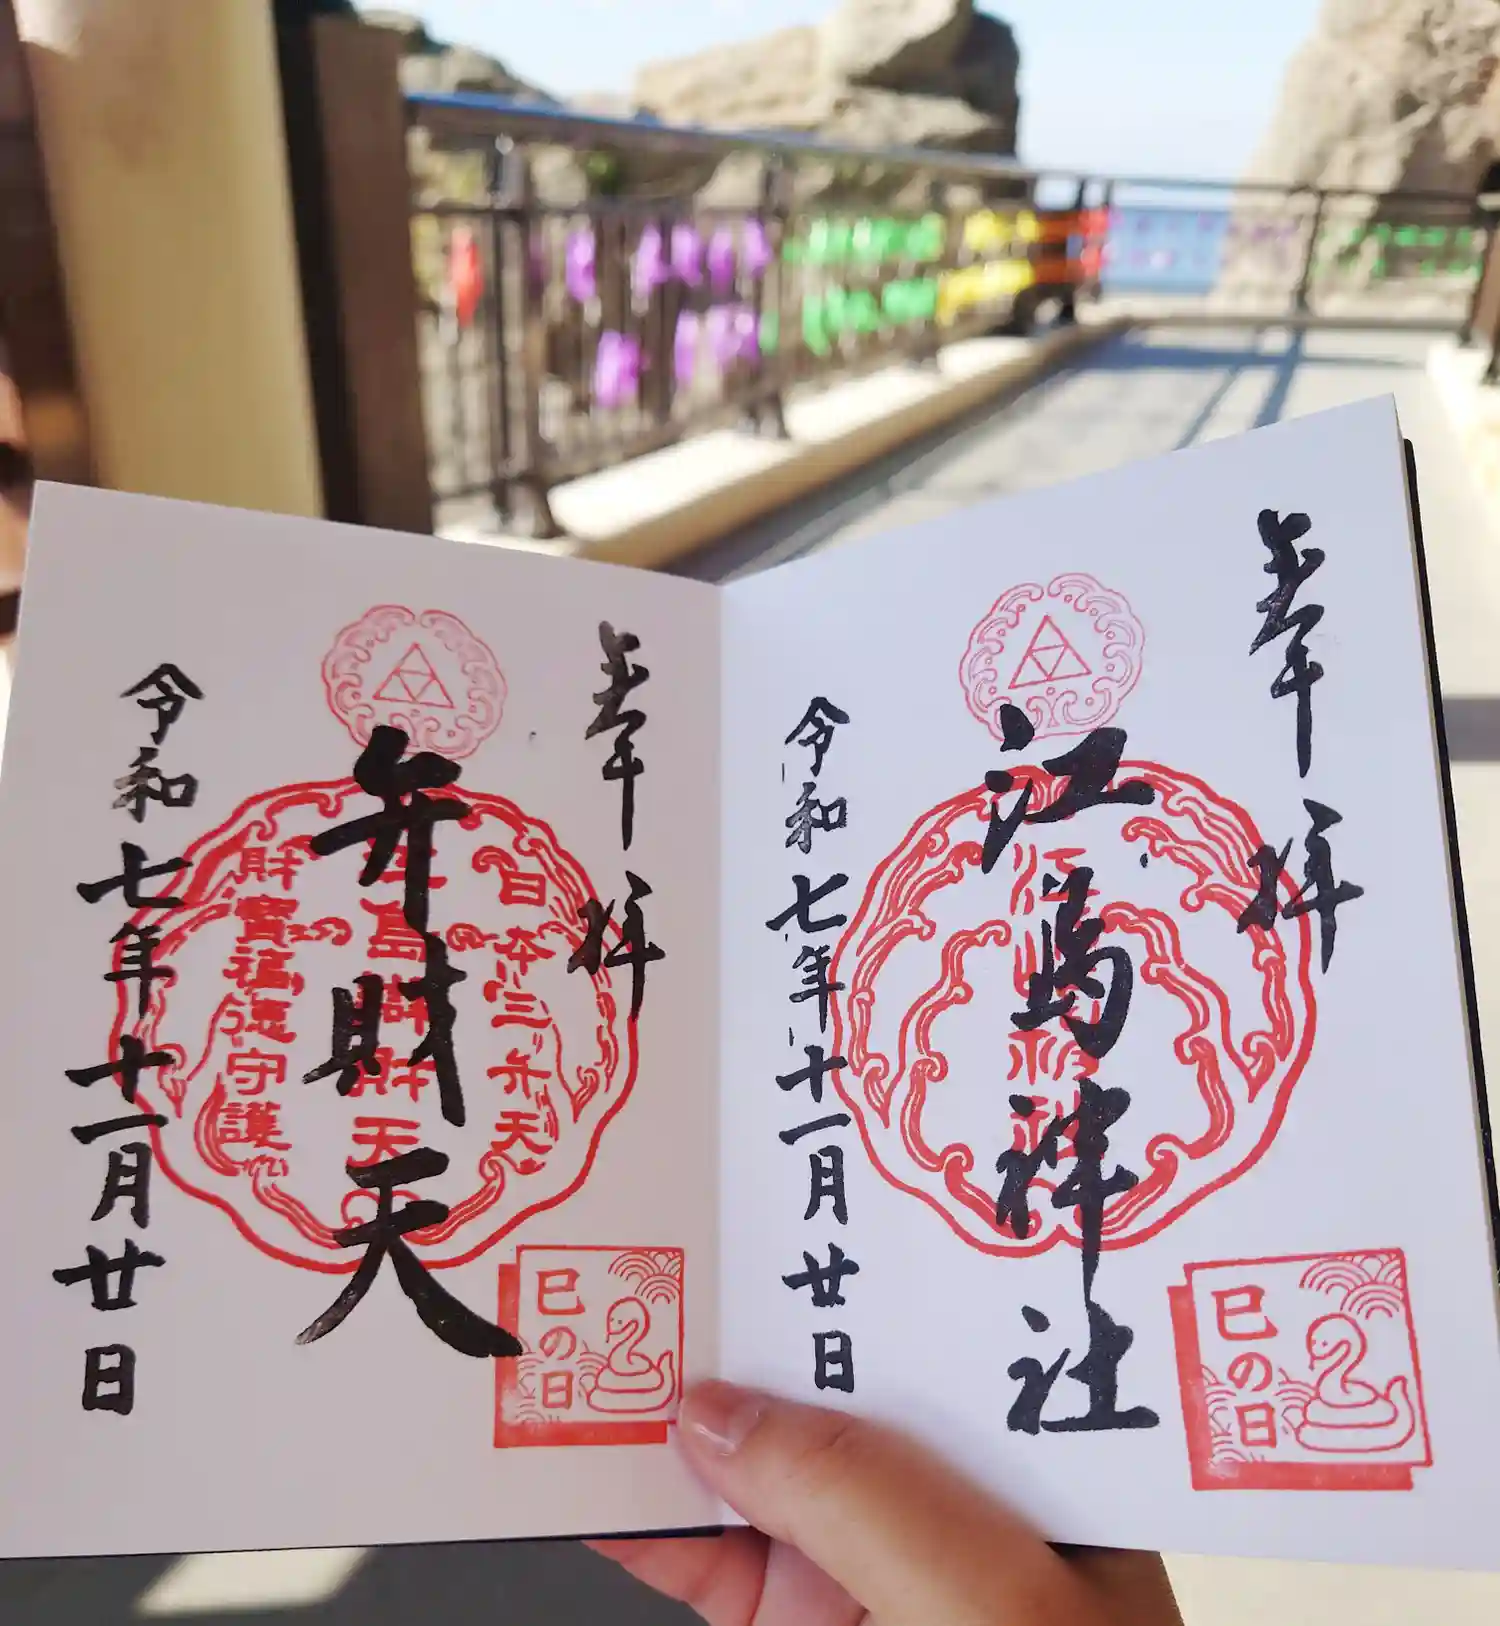 奉拝
江島神社
江島神社
令和七年十一月廿日
巳の日
奉拝
日本三弁天
弁財天
江島辯財天
財寳福徳守護
令和七年十一月廿日
巳の日